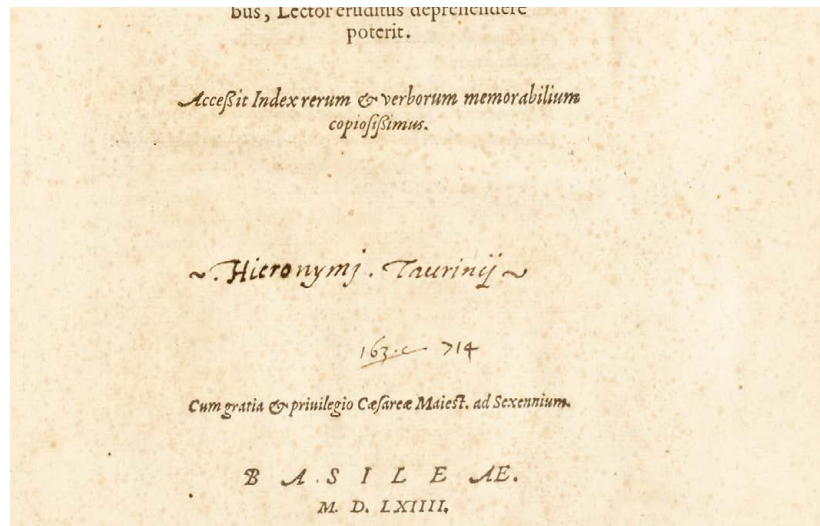 bus, Lector eruditus deprehendere
poterit.
Acceßit Index rerum & verborum memorabilium
copiosißimus.
~ . Hieronymj . Taurinij ~
163.c 714
Cum gratia & priuilegio Cæsareæ Maiest. ad Sexennium.
BASILEAE.
M. D. LXIIII.